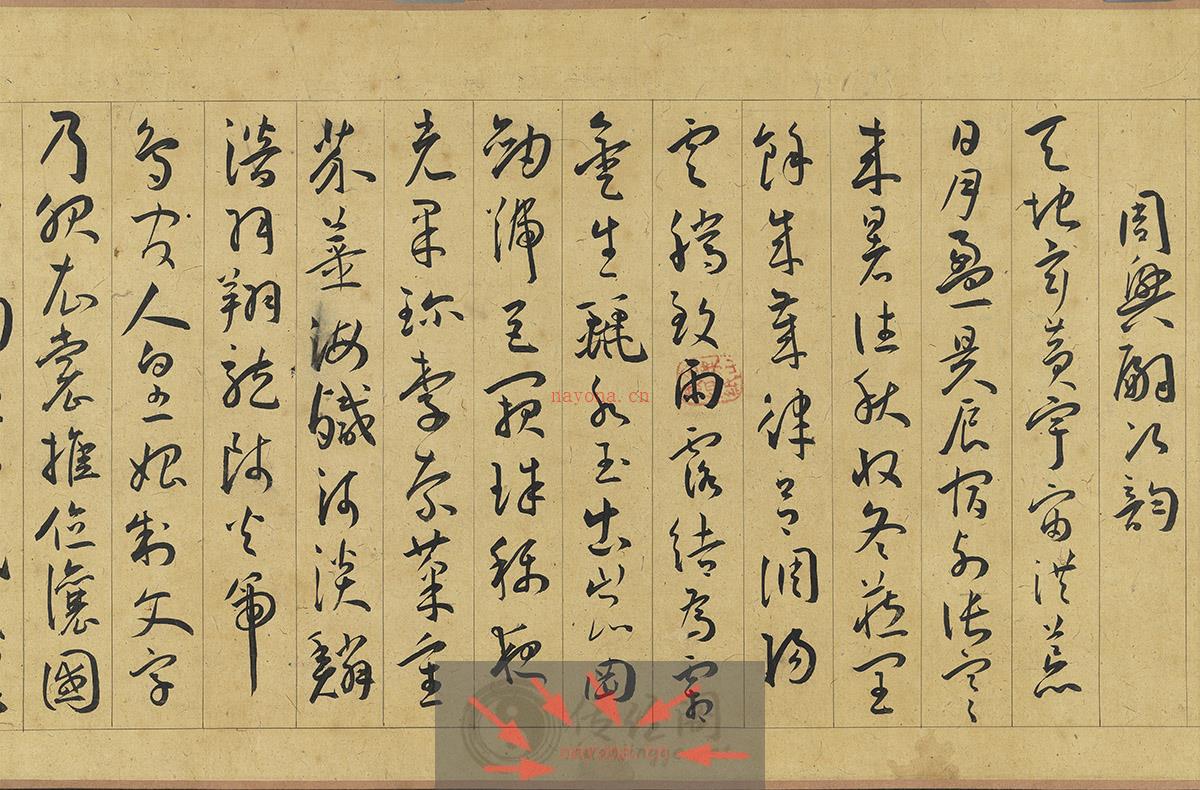 周興嗣次韻
天地玄黃宇宙洪荒
日月盈昃辰宿列張寒
來暑往秋收冬藏閏
餘成歲律呂調陽
雲騰致雨露結為霜
金生麗水玉出崑岡
劍號巨闕珠稱夜
光果珍李柰菜重
芥薑海鹹河淡鱗
潛羽翔龍師火帝
鳥官人皇始制文字
乃服衣裳推位讓國
nayona.cn